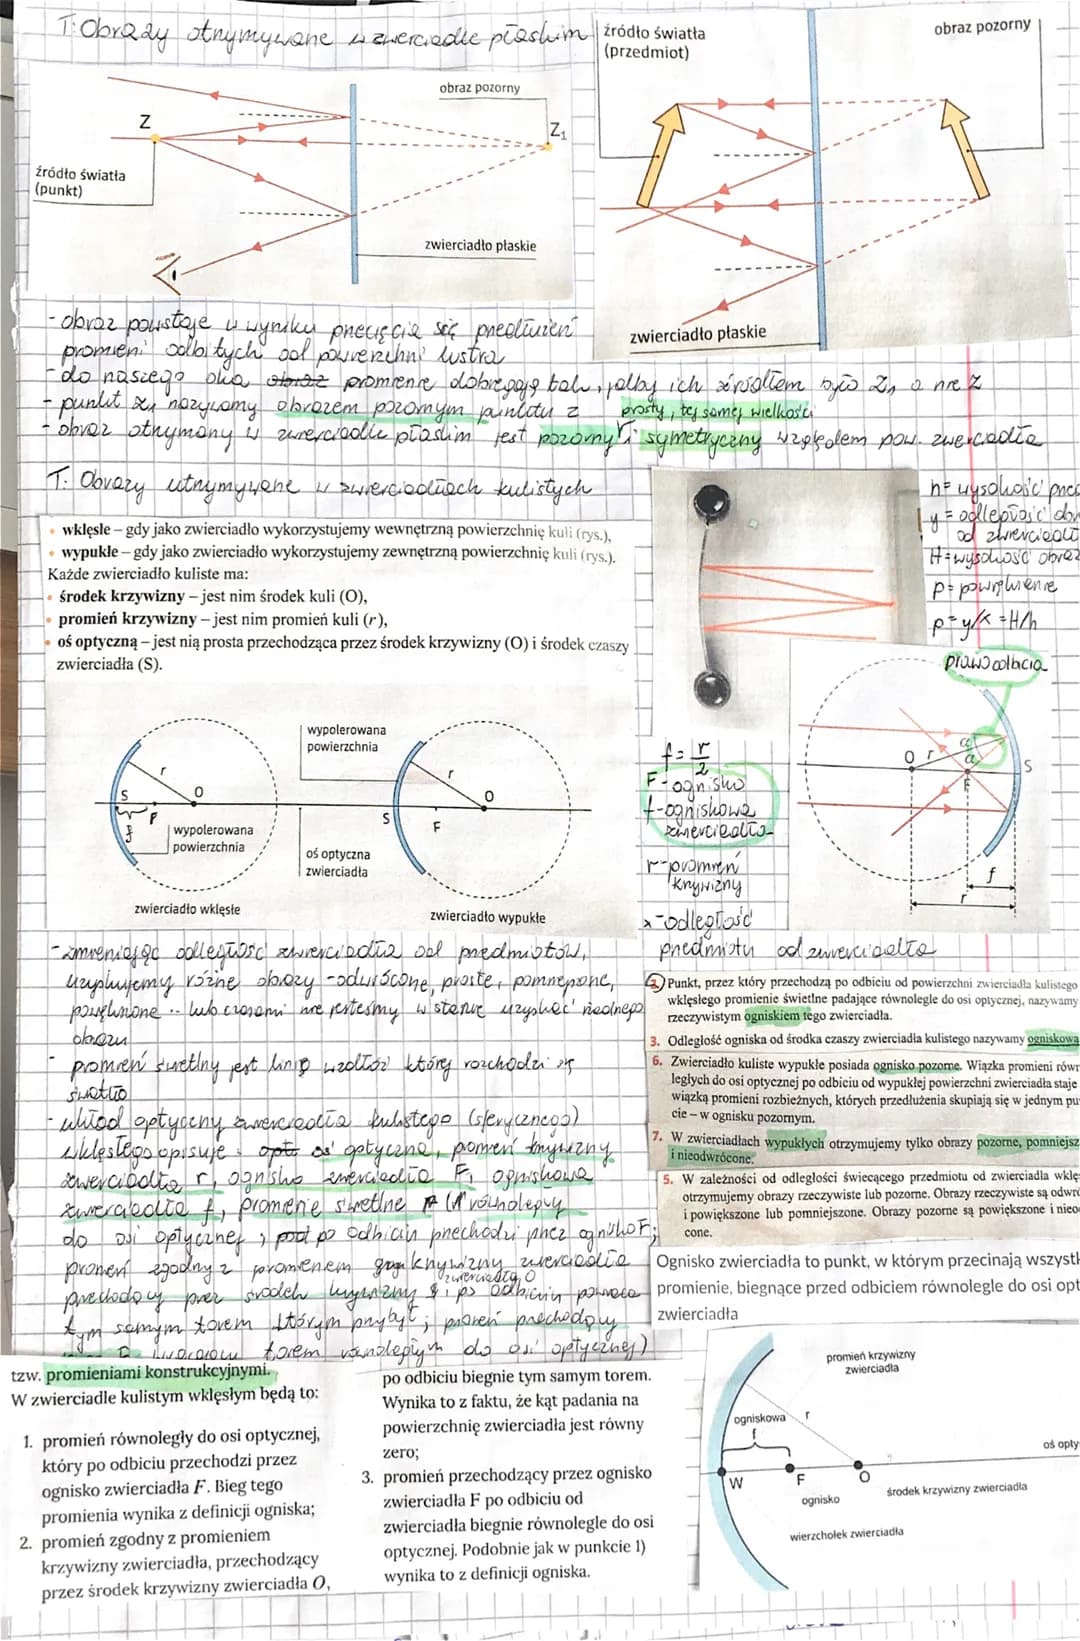 T: Obrazy otrzymywane w zwierciadle płaskim
źródło światła
(przedmiot)
obraz pozorny
obraz pozorny
Z
Z₁
źródło światła
(punkt)
zwierciadło płaskie
zwierciadło płaskie
- obraz powstaje w wyniku przecięcia się przedłużeń
promieni odbitych od powierzchni lustra
- do naszego oka promienie dobiegają tak, jakby ich źródłem było Z₁ a nie Z
- punkt Z₁ nazywamy obrazem pozornym punktu Z
prosty, tej samej wielkości
- obraz otrzymany w zwierciadle płaskim jest pozorny i symetryczny względem pow. zwierciadła
T: Obrazy otrzymywane w zwierciadłach kulistych
• wklęsłe – gdy jako zwierciadło wykorzystujemy wewnętrzną powierzchnię kuli (rys.),
• wypukłe – gdy jako zwierciadło wykorzystujemy zewnętrzną powierzchnię kuli (rys.).
Każde zwierciadło kuliste ma:
• środek krzywizny – jest nim środek kuli (O),
• promień krzywizny – jest nim promień kuli (r),
• oś optyczną – jest nią prosta przechodząca przez środek krzywizny (O) i środek czaszy
zwierciadła (S).
h = wysokość
y = odległość
od
H = wysokość
p = powiększenie
p = y/x = H/h
prawo odbicia
wypolerowana
powierzchnia
r
O
S
F
f
wypolerowana
powierzchnia
oś optyczna
zwierciadła
r
O
S
F
zwierciadło wklęsłe
zwierciadło wypukłe
f = r/2
F - ognisko
f - ogniskowa
zwierciadła
r - promień
krzywizny
x - odległość
przedmiotu od zwierciadła
O
r
α
α
F
S
f
r
- zmieniając odległość zwierciadła od przedmiotów,
uzyskujemy różne obrazy - odwrócone, proste, pomniejszone,
powiększone .. lub czasami nie jesteśmy w stanie uzyskać żadnego
obrazu
- promień świetlny jest linią wzdłuż której rozchodzi się
światło
- układ optyczny zwierciadła kulistego (sferycznego)
wklęsłego opisuje: oś optyczna, promień krzywizny
zwierciadła r, ognisko zwierciadła F, ogniskowa
zwierciadła f, promienie świetlne (równoległy
do osi optycznej, po odbiciu przechodzi przez ognisko F;
promień zgodny z promieniem krzywizny zwierciadła
zwierciadła O
przechodzący przez środek krzywizny i po odbiciu powraca
tym samym torem którym przybył; promień przechodzący
torem równoległym do osi optycznej)
2. Punkt, przez który przechodzą po odbiciu od powierzchni zwierciadła kulistego
wklęsłego promienie świetlne padające równolegle do osi optycznej, nazywamy
rzeczywistym ogniskiem tego zwierciadła.
3. Odległość ogniska od środka czaszy zwierciadła kulistego nazywamy ogniskową
6. Zwierciadło kuliste wypukłe posiada ognisko pozorne. Wiązka promieni równ
ległych do osi optycznej po odbiciu od wypukłej powierzchni zwierciadła staje
wiązką promieni rozbieżnych, których przedłużenia skupiają się w jednym pu
cie – w ognisku pozornym.
7. W zwierciadłach wypukłych otrzymujemy tylko obrazy pozorne, pomniejsz
i nieodwrócone.
5. W zależności od odległości świecącego przedmiotu od zwierciadła wklę
otrzymujemy obrazy rzeczywiste lub pozorne. Obrazy rzeczywiste są odwró
i powiększone lub pomniejszone. Obrazy pozorne są powiększone i nieo
cone.
Ognisko zwierciadła to punkt, w którym przecinają wszystk
promienie, biegnące przed odbiciem równolegle do osi opt
zwierciadła
tzw. promieniami konstrukcyjnymi.
W zwierciadle kulistym wklęsłym będą to:
1. promień równoległy do osi optycznej,
który po odbiciu przechodzi przez
ognisko zwierciadła F. Bieg tego
promienia wynika z definicji ogniska;
2. promień zgodny z promieniem
krzywizny zwierciadła, przechodzący
przez środek krzywizny zwierciadła O,
po odbiciu biegnie tym samym torem.
Wynika to z faktu, że kąt padania na
powierzchnię zwierciadła jest równy
zero;
3. promień przechodzący przez ognisko
zwierciadła F po odbiciu od
zwierciadła biegnie równolegle do osi
optycznej. Podobnie jak w punkcie 1)
wynika to z definicji ogniska.
promień krzywizny
zwierciadła
ogniskowa
f
r
oś opty
W
F
O
ognisko
środek krzywizny zwierciadła
wierzchołek zwierciadła